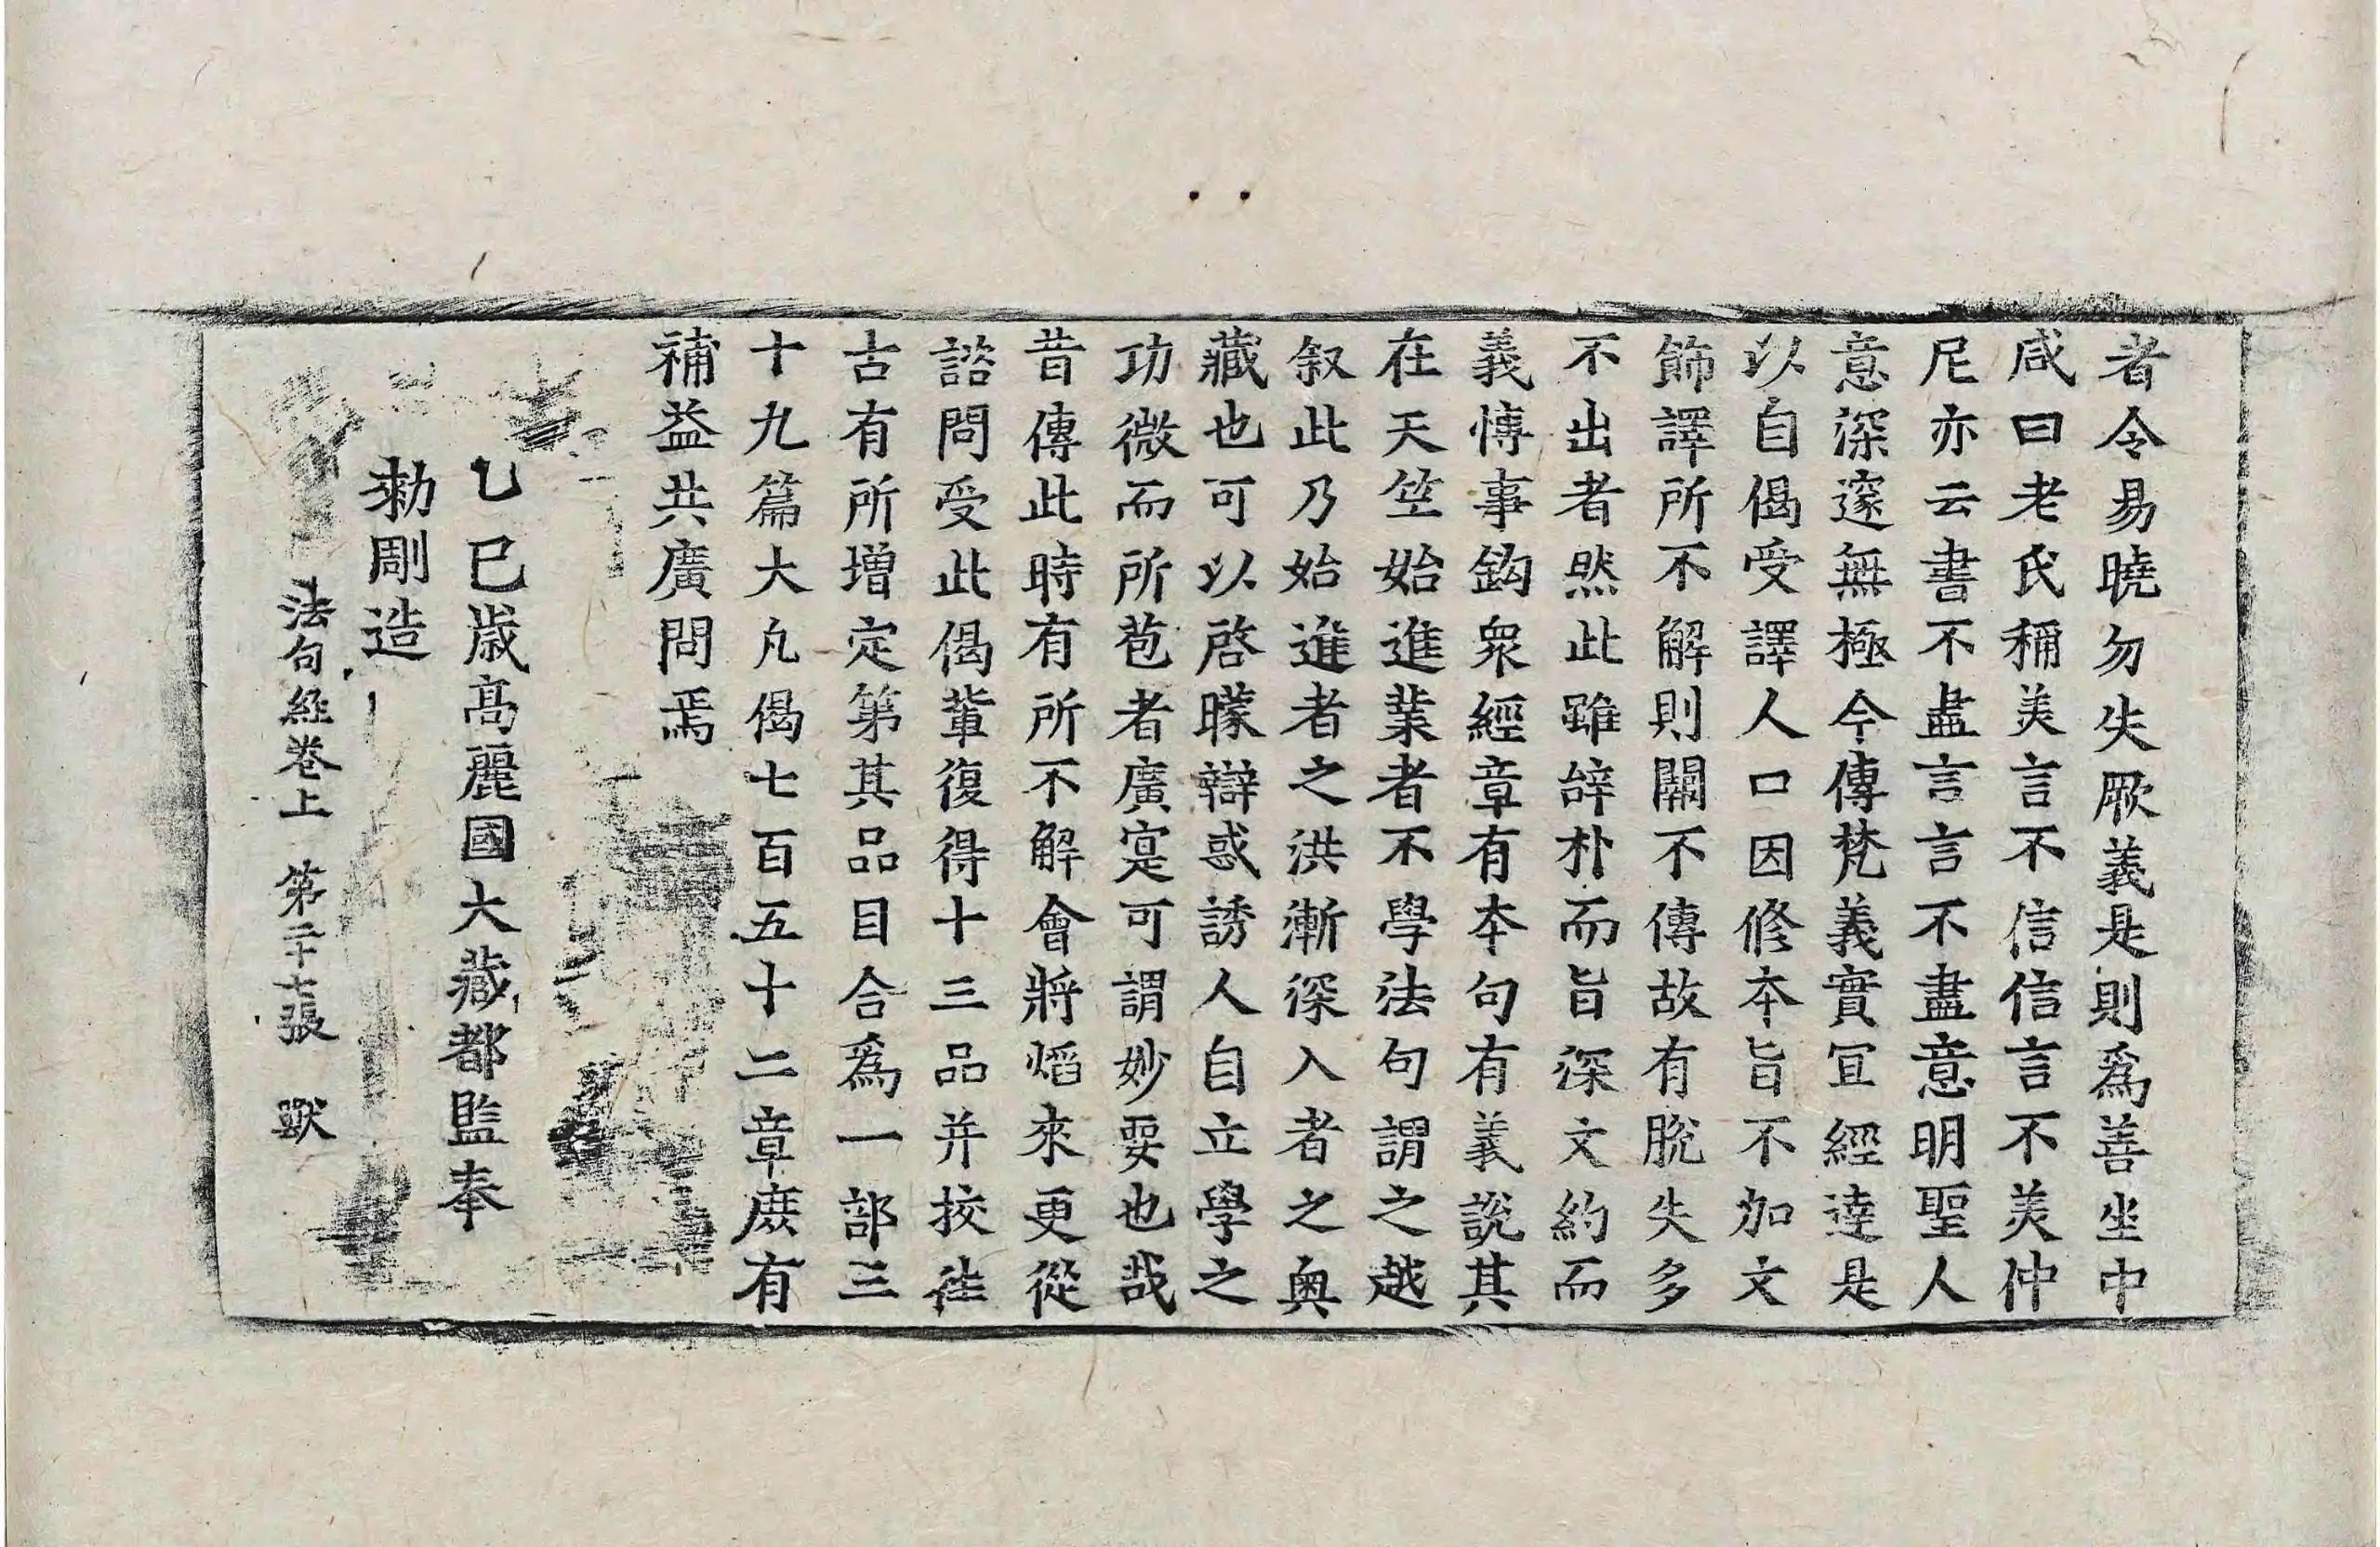 者令易曉勿失厥義是則爲善坐中
咸曰老氏稱美言不信信言不美仲
尼亦云書不盡言言不盡意明聖人
意深邃無極今傳梵義實宜經達是
以自偈受譯人口因修本旨不加文
飾譯所不解則闕不傳故有脫失多
不出者然此雖辭朴而旨深文約而
義博事鈎衆經章有本句有義說其
在天竺始進業者不學法句謂之越
叙此乃始進者之洪漸深入者之奧
藏也可以啓曚辯惑誘人自立學之
功微而所苞者廣寔可謂妙要也哉
昔傳此時有所不解會將焰來更從
諮問受此偈輩復得十三品并挍往
古有所增定第其品目合爲一部三
十九篇大凡偈七百五十二章庶有
補益共廣問焉
乙巳歲高麗國大藏都監奉
勑剛造
法句經卷上 第二十七張 獸